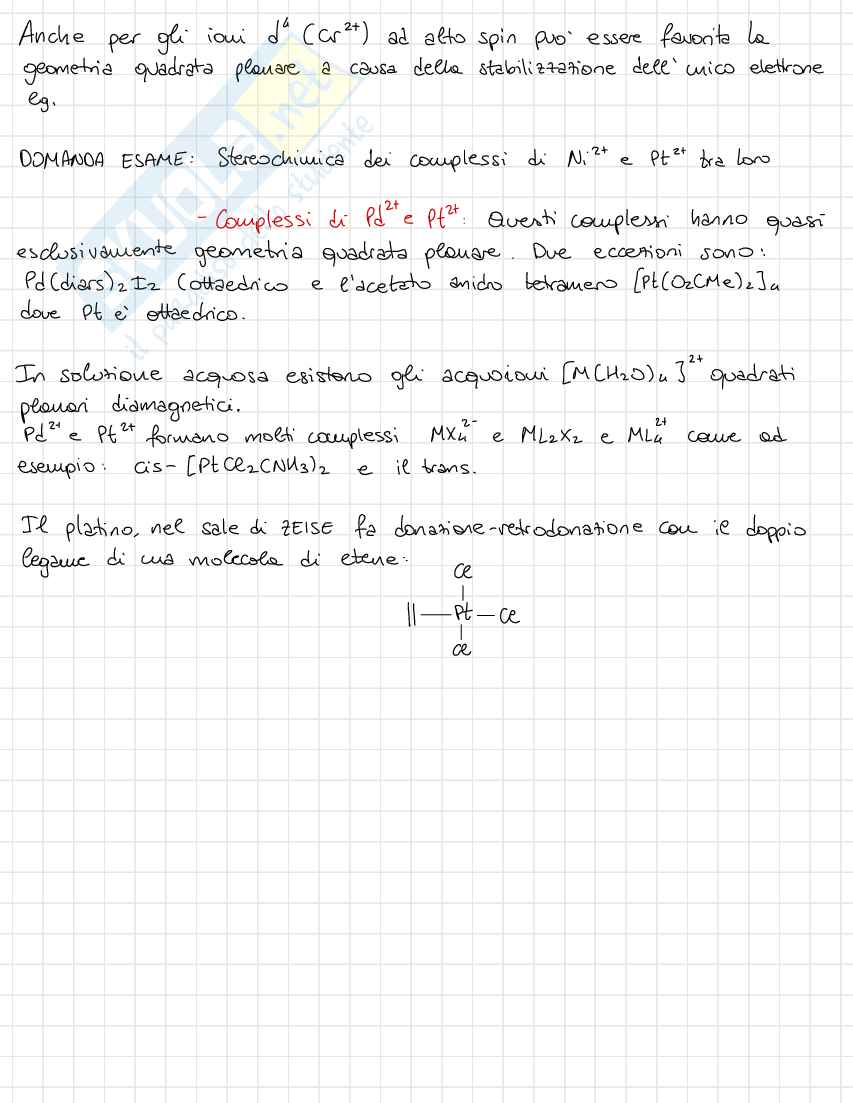 Anche per gli ioni d⁴ (Cr²⁺) ad alto spin può essere favorita la
geometria quadrata planare a causa della stabilizzazione dell'unico elettrone
eg.
DOMANDA ESAME: Stereochimica dei complessi di Ni²⁺ e Pt²⁺ tra loro
- Complessi di Pd²⁺ e Pt²⁺: Questi complessi hanno quasi
esclusivamente geometria quadrata planare. Due eccezioni sono:
Pd(diars)₂I₂ (ottaedrico e l'acetato anidro tetramero [Pt(O₂CMe)₂]₄
dove Pt è ottaedrico.
In soluzione acquosa esistono gli acquoioni [M(H₂O)₄]²⁺ quadrati
planari diamagnetici.
Pd²⁺ e Pt²⁺ formano molti complessi MX₄²⁻ e ML₂X₂ e ML₄²⁺ come ad
esempio: cis-[PtCl₂(NH₃)₂ e il trans.
Il platino, nel sale di ZEISE fa donazione-retrodonazione con il doppio
legame di una molecola di etene:
Cl
|| — Pt — Cl
Cl
SKUOLA.net
il paradiso dello studente